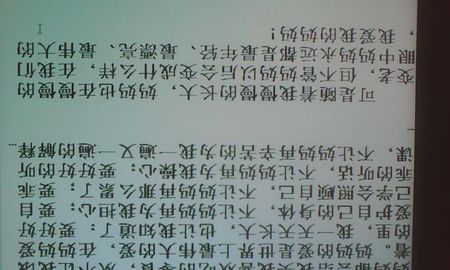 着。妈妈的爱是世界上最伟大的爱，在妈妈爱
的里，我一天天长大，也让我知道了：要好好
爱护自己的身体，不让妈妈再为我担心；要自
己学会照顾自己，不让妈妈再那么累了；要乖
乖的听话，不让妈妈再为我操心；要好好的听
课，不让妈妈再辛苦的为我一遍又一遍的解释
可是随着我慢慢的长大，妈妈也在慢慢的
变老，但不管妈妈以后会变成什么样，在我们
眼中妈妈永远都是最年轻、最漂亮、最伟大的
，我爱我的妈妈！